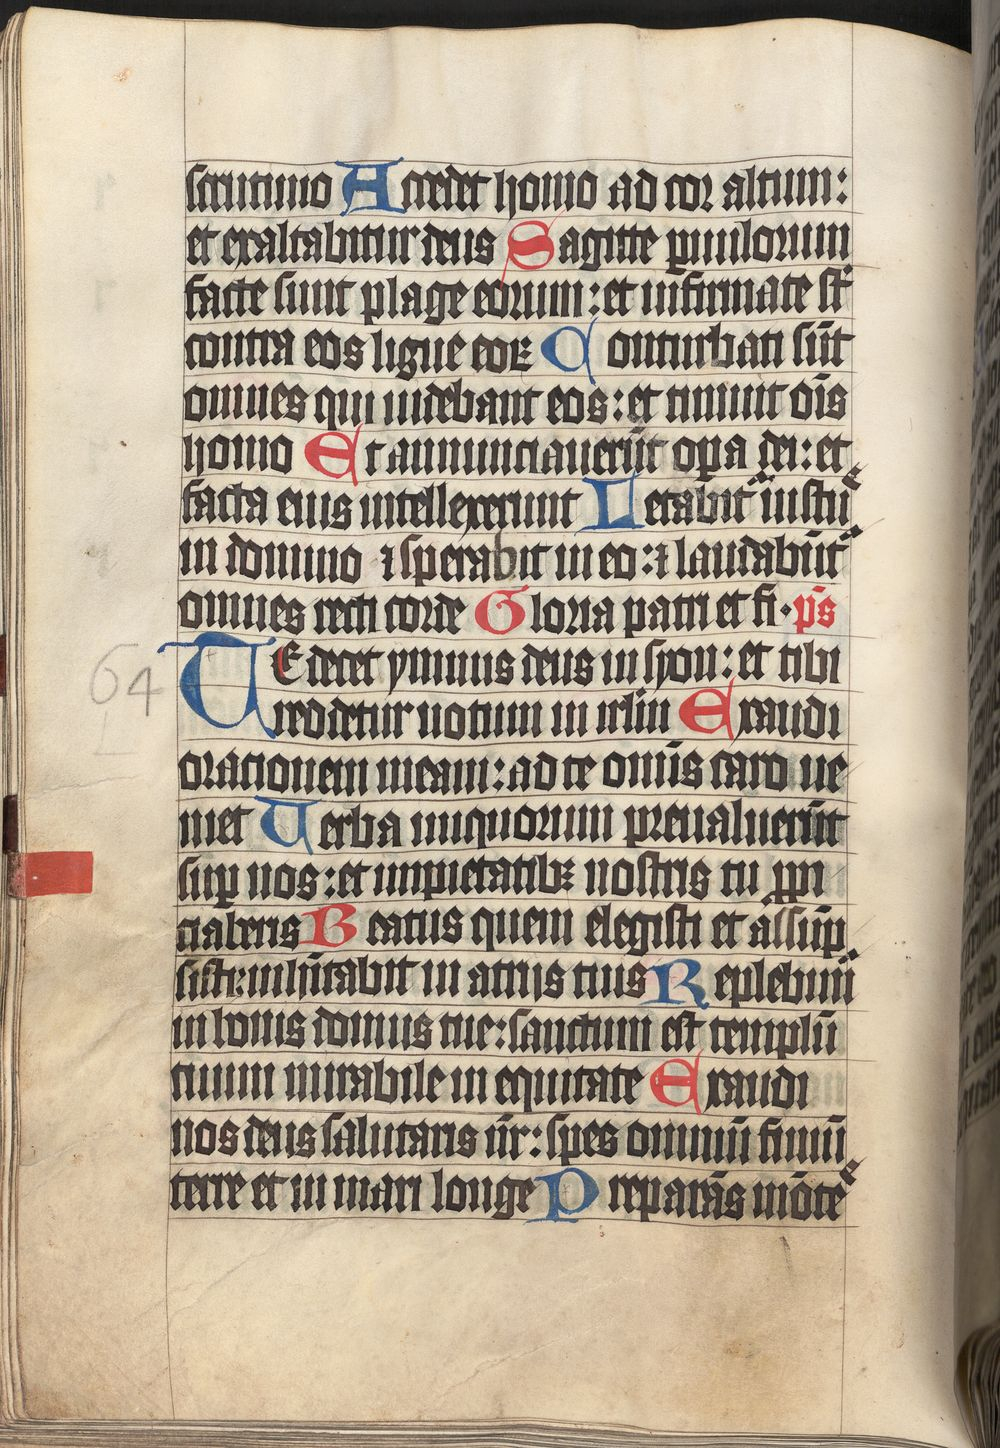 scrutinio Accedet homo ad cor altum:
et exaltabitur deus Sagitte paruulorum
facte sunt plage eorum: et infirmate st̄
contra eos ligue eoꝝ Conturbati sūt
omnes qui uidebant eos: et timuit oīs
homo Et annunciauerūt oꝑa dei: et
facta eius intellexerunt Letabit᷑ iustꝰ
in domino ⁊ sperabit in eo: ⁊ laudabūt᷑
omnes recti corde Gloria patri et fi. p̄s
TE decet ymnus deus in syon: et tibi
reddetur uotum in irl̄m Exaudi
orationem meam: ad te omīs caro ue
niet Uerba iniquorum preualuerūt
suꝑ nos: et impietatibꝫ nostris tu ꝓpi
ciaberis Beatus quem elegisti et assūp
sisti: inhītabit in atriis tuis Replebimꝰ
in bonis domus tue: sanctum est templū
tuum mirabile in equitate Exaudi
nos deus salutaris n̄r: spes omniū finiū
terre et in mari longe Preparās mōte
64